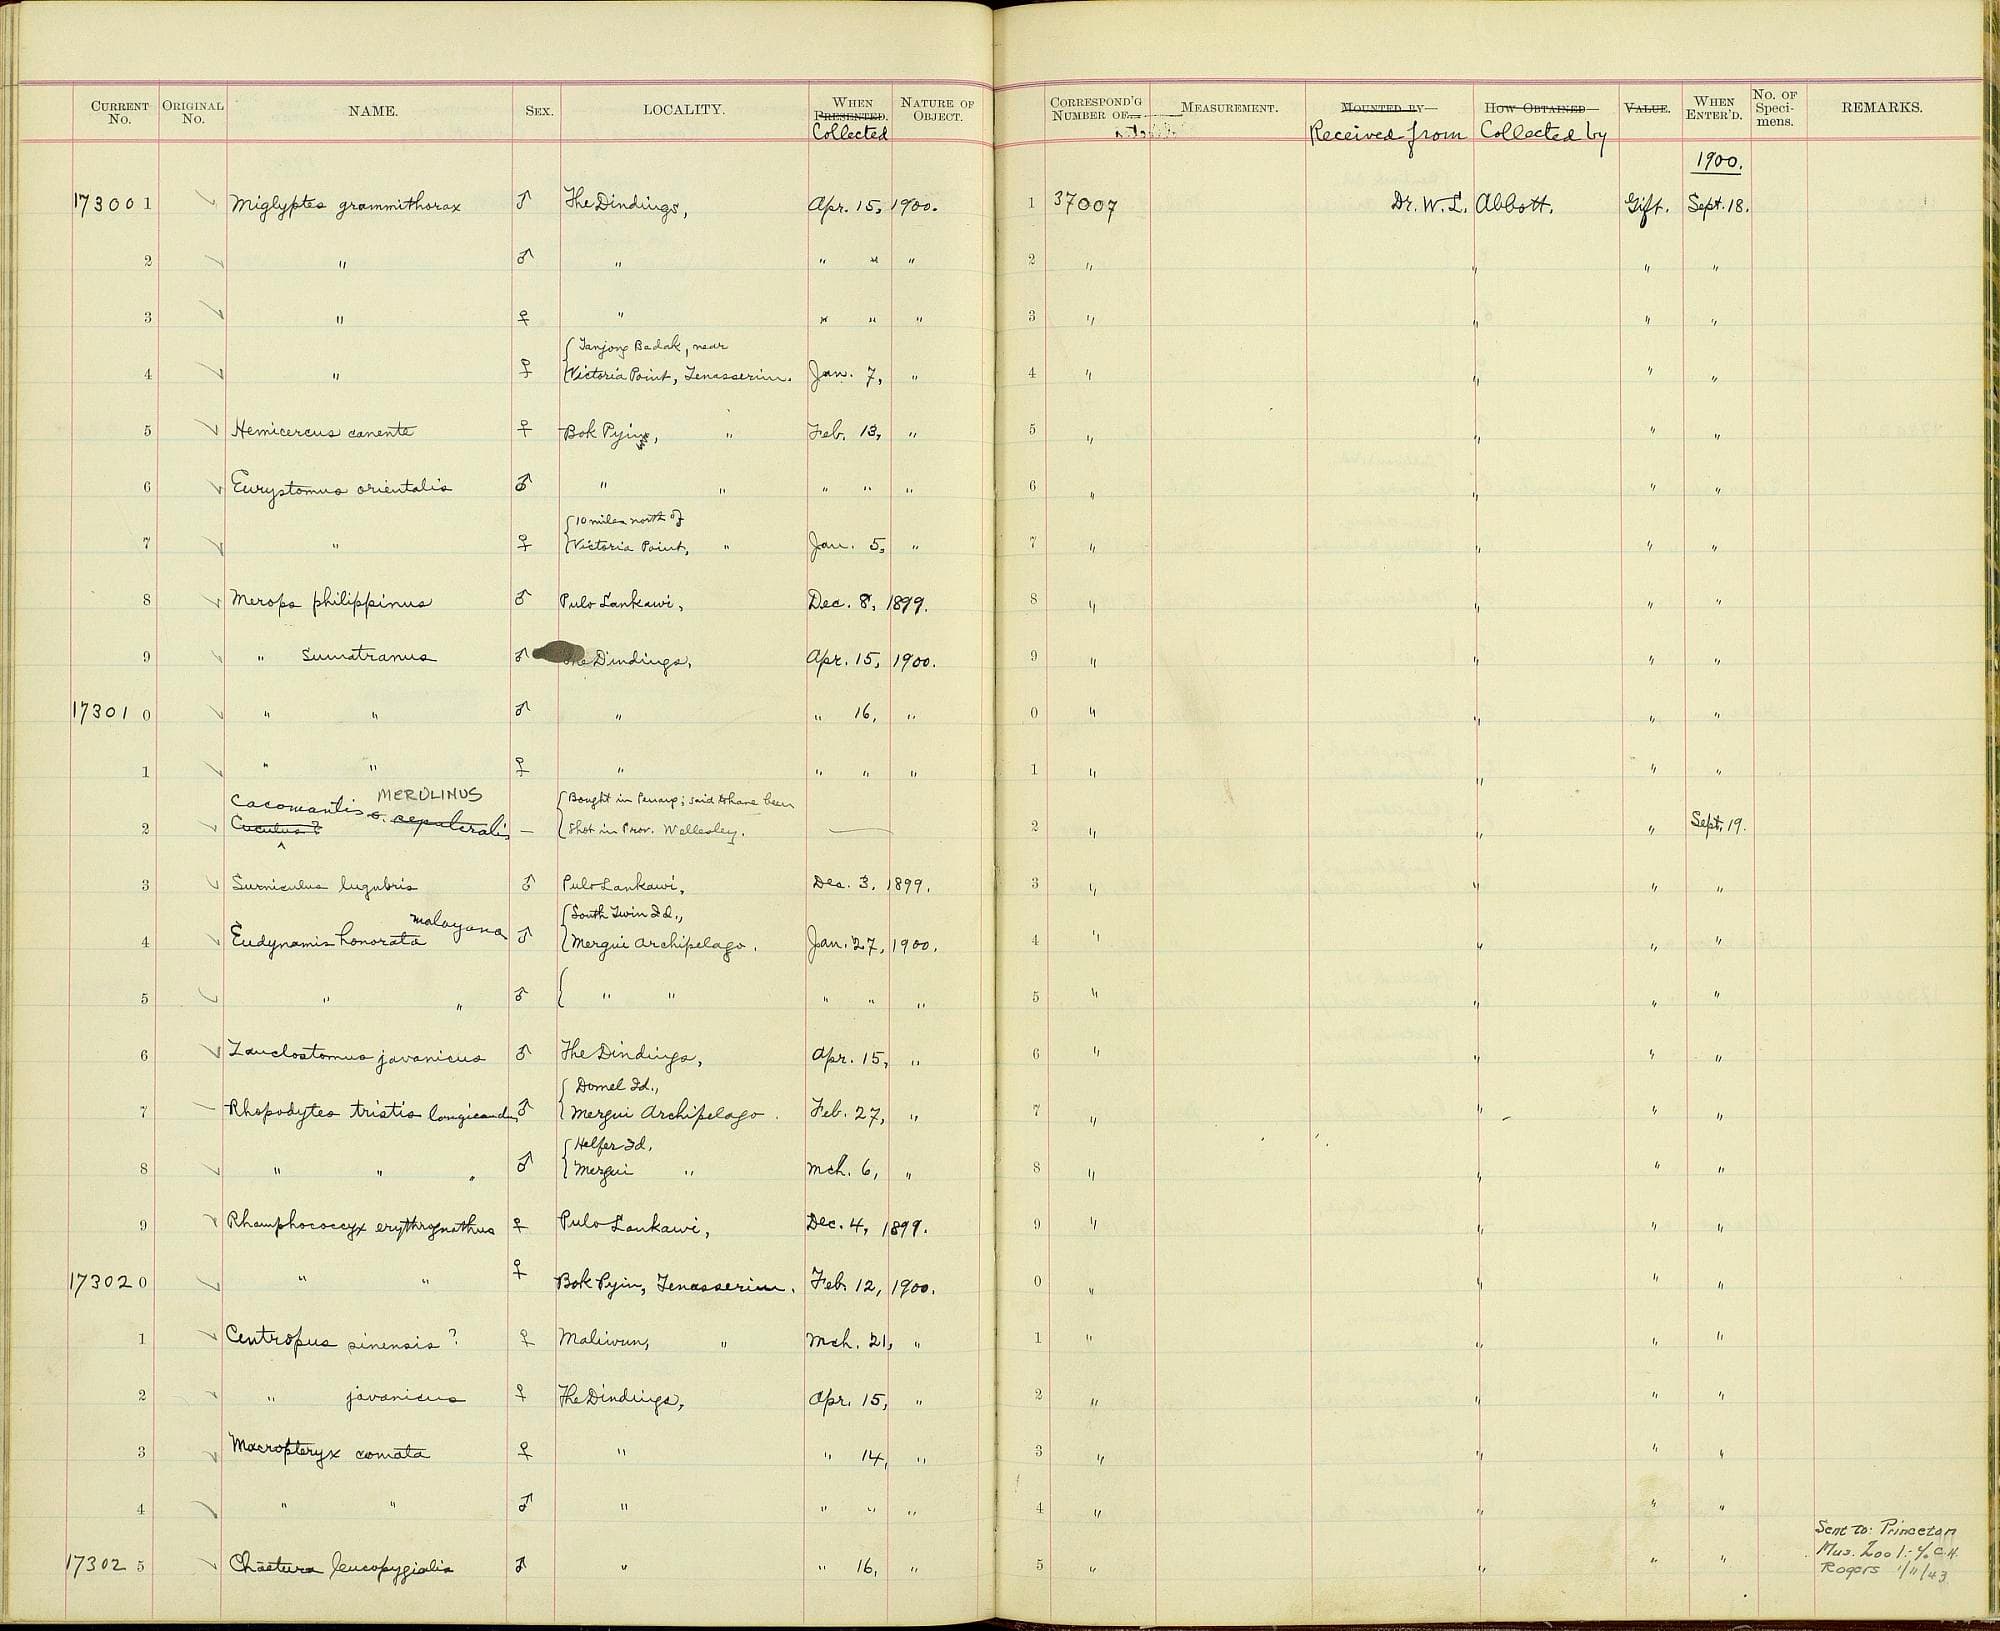 CURRENT No. ORIGINAL No. NAME. SEX. LOCALITY. WHEN PRESENTED. Collected NATURE OF OBJECT. CORRESPOND'G NUMBER OF MEASUREMENT. MOUNTED BY Received from HOW OBTAINED Collected by VALUE. WHEN ENTER'D. No. OF Specimens. REMARKS.
1900.
173001 Miglyptes grammithorax ♂ The Dindings, Apr. 15, 1900. 1 37007 Dr. W. L. Abbott. Gift. Sept. 18.
2 " ♂ " " " " 2 " " " "
3 " ♀ " " " " 3 " " " "
Tanjong Badak, near
4 " ♀ Victoria Point, Tenasserim. Jan. 7, " 4 " " " "
5 Hemicercus canente ♀ Bok Pyin, " Feb. 13, " 5 " " " "
6 Eurystomus orientalis ♂ " " " " " 6 " " " "
10 miles north of
7 " ♀ Victoria Point, " Jan. 5, " 7 " " " "
8 Merops philippinus ♂ Pulo Lankawi, Dec. 8, 1899. 8 " " " "
9 " Sumatranus ♂ The Dindings, Apr. 15, 1900. 9 " " " "
173010 " " ♂ " " 16, " 0 " " " "
1 " " ♀ " " " " 1 " " " "
Cacomantis MERULINUS Bought in Penang; said to have been
2 Cuculus? s. sepulcralis — Shot in Prov. Wellesley. — 2 " " " Sept. 19.
3 Surniculus lugubris ♂ Pulo Lankawi, Dec. 3, 1899. 3 " " " "
malayana South Twin Id.,
4 Eudynamis honorata ♂ Mergui Archipelago. Jan. 27, 1900. 4 " " " "
5 " " ♂ " " " " " 5 " " " "
6 Zanclostomus javanicus ♂ The Dindings, Apr. 15, " 6 " " " "
Domel Id.,
7 Rhopodytes tristis longicaudus ♂ Mergui Archipelago. Feb. 27, " 7 " " " "
Helfer Id.
8 " " " ♂ Mergui " Mch. 6, " 8 " " " "
9 Rhamphococcyx erythrognathus ♀ Pulo Lankawi, Dec. 4, 1899. 9 " " " "
173020 " " ♀ Bok Pyin, Tenasserim. Feb. 12, 1900. 0 " " " "
1 Centropus sinensis? ♀ Maliwun, " Mch. 21, " 1 " " " "
2 " javanicus ♀ The Dindings, Apr. 15, " 2 " " " "
3 Macropteryx comata ♀ " " 14, " 3 " " " "
4 " " ♂ " " " " 4 " " " "
173025 Chaetura leucopygialis ♂ " " 16, " 5 " " " "
Sent to: Princeton
Mus. Zool. % C.H.
Rogers 1/11/43